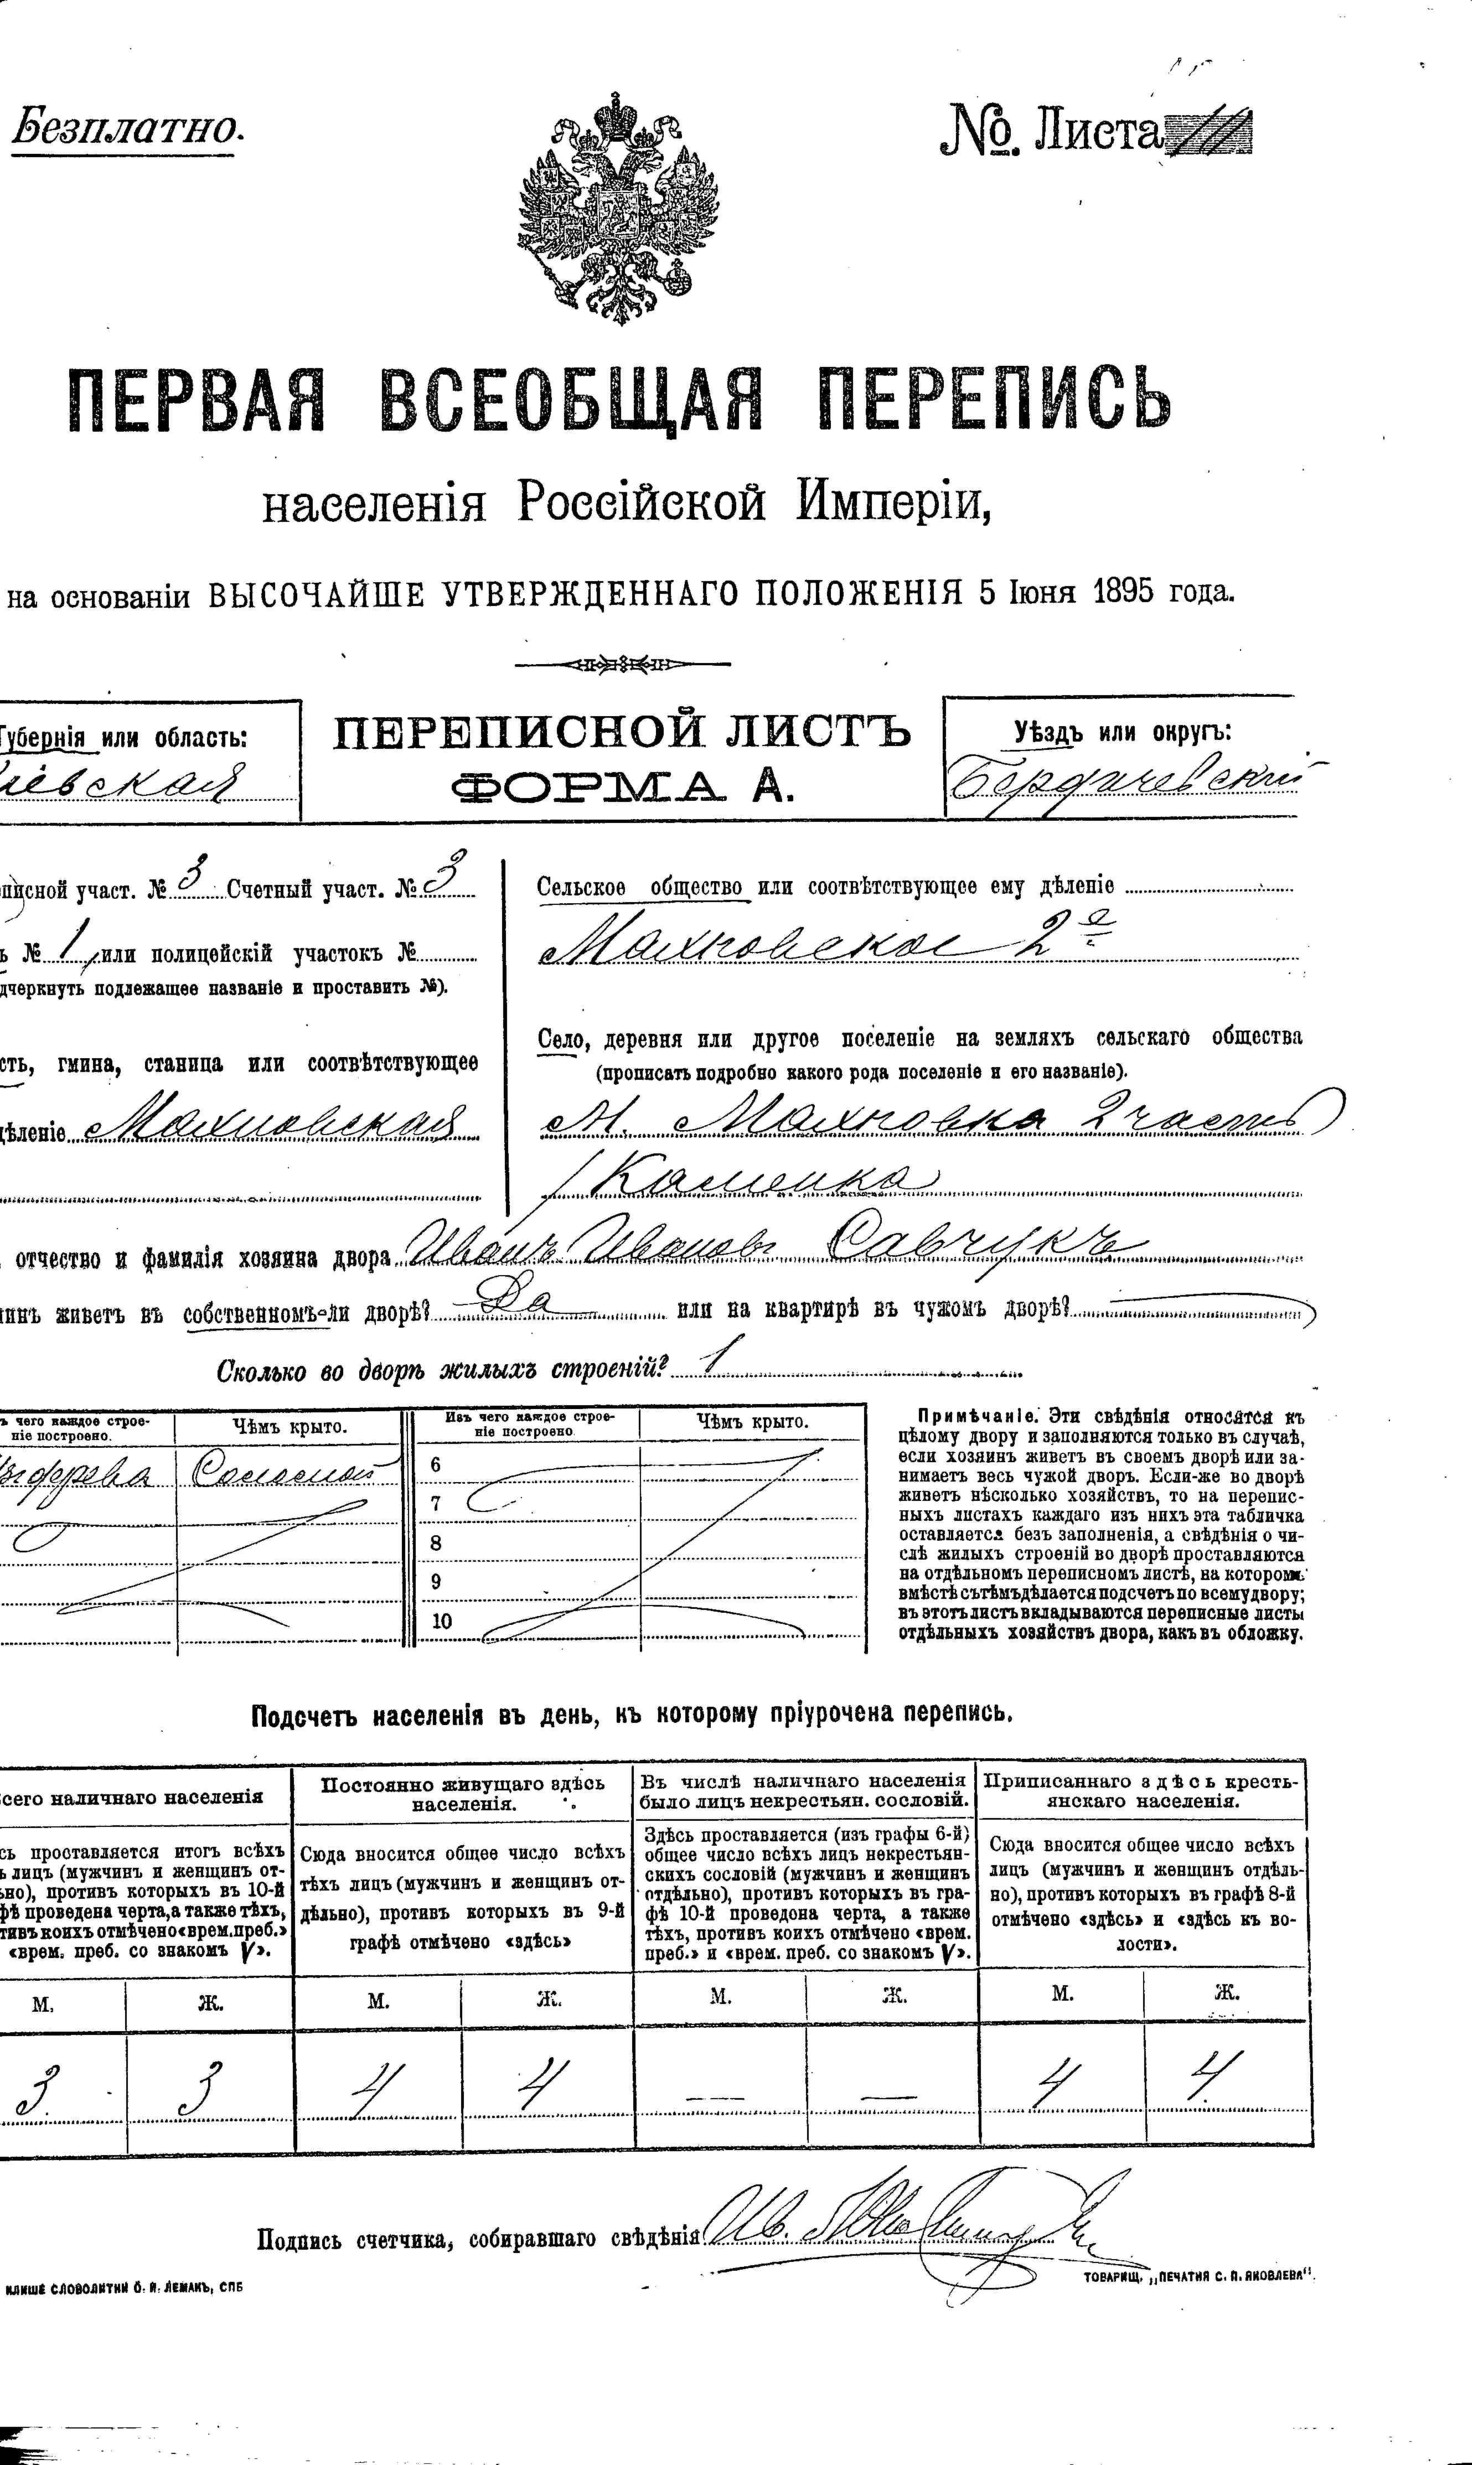 Безплатно.
№ Листа 11
ПЕРВАЯ ВСЕОБЩАЯ ПЕРЕПИСЬ
населенія Россійской Имперіи,
на основаніи ВЫСОЧАЙШЕ УТВЕРЖДЕННАГО ПОЛОЖЕНІЯ 5 Іюня 1895 года.
Губернія или область:
іевская
ПЕРЕПИСНОЙ ЛИСТЪ
ФОРМА А.
Уѣздъ или округъ:
Бердичевский
писной участ. № 3 Счетный участ. № 3
ь № 1, или полицейскій участокъ №
дчеркнуть подлежащее названіе и проставить №).
сть, гмина, станица или соотвѣтствующее
дѣленіе Махновская
Сельское общество или соотвѣтствующее ему дѣленіе
Махновское 2е
Село, деревня или другое поселеніе на земляхъ сельскаго общества
(прописать подробно какого рода поселеніе и его названіе).
М. Махновка 2 часть
/Каменка
отчество и фамилія хозяина двора Иванъ Ивановъ Савчукъ
инъ живетъ въ собственномъ-ли дворѣ? Да или на квартирѣ въ чужомъ дворѣ?
Сколько во дворѣ жилыхъ строеній? 1
ъ чего каждое строе-
ніе построено.
Чѣмъ крыто.
Изъ чего каждое строе-
ніе построено
Чѣмъ крыто.
Соломой
6
7
8
9
10
Примѣчаніе. Эти свѣдѣнія относятся къ
цѣлому двору и заполняются только въ случаѣ,
если хозяинъ живетъ въ своемъ дворѣ или за-
нимаетъ весь чужой дворъ. Если-же во дворѣ
живетъ нѣсколько хозяйствъ, то на перепис-
ныхъ листахъ каждаго изъ нихъ эта табличка
оставляется безъ заполненія, а свѣдѣнія о чи-
слѣ жилыхъ строеній во дворѣ проставляются
на отдѣльномъ переписномъ листѣ, на которомъ
вмѣстѣ съ тѣмъ дѣлается подсчетъ по всему двору;
въ этотъ листъ вкладываются переписные листы
отдѣльныхъ хозяйствъ двора, какъ въ обложку.
Подсчетъ населенія въ день, къ которому пріурочена перепись.
сего наличнаго населенія
Постоянно живущаго здѣсь
населенія.
Въ числѣ наличнаго населенія
было лицъ некрестьян. сословій.
Приписаннаго здѣсь кресть-
янскаго населенія.
сь проставляется итогъ всѣхъ
ъ лицъ (мужчинъ и женщинъ от-
ьно), противъ которыхъ въ 10-й
фѣ проведена черта, а также тѣхъ,
тивъ коихъ отмѣчено «врем. преб.»
«врем. преб. со знакомъ V».
Сюда вносится общее число всѣхъ
тѣхъ лицъ (мужчинъ и женщинъ от-
дѣльно), противъ которыхъ въ 9-й
графѣ отмѣчено «здѣсь»
Здѣсь проставляется (изъ графы 6-й)
общее число всѣхъ лицъ некрестьян-
скихъ сословій (мужчинъ и женщинъ
отдѣльно), противъ которыхъ въ гра-
фѣ 10-й проведона черта, а также
тѣхъ, противъ коихъ отмѣчено «врем.
преб.» и «врем. преб. со знакомъ V».
Сюда вносится общее число всѣхъ
лицъ (мужчинъ и женщинъ отдѣль-
но), противъ которыхъ въ графѣ 8-й
отмѣчено «здѣсь» и «здѣсь къ во-
лости».
М. Ж. М. Ж. М. Ж. М. Ж.
3 3 4 4 — — 4 4
Подпись счетчика, собиравшаго свѣдѣнія Ив.
КЛИШЕ СЛОВОЛИТНИ О. И. ЛЕМАНЪ, СПБ
ТОВАРИЩ. „ПЕЧАТНЯ С. П. ЯКОВЛЕВА".